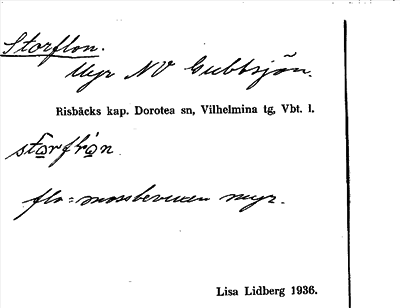 Storflon.
Myr NV Gubbsjön.
Risbäcks kap. Dorotea sn, Vilhelmina tg, Vbt. l.
flo = mossbevuxen myr.
Lisa Lidberg 1936.